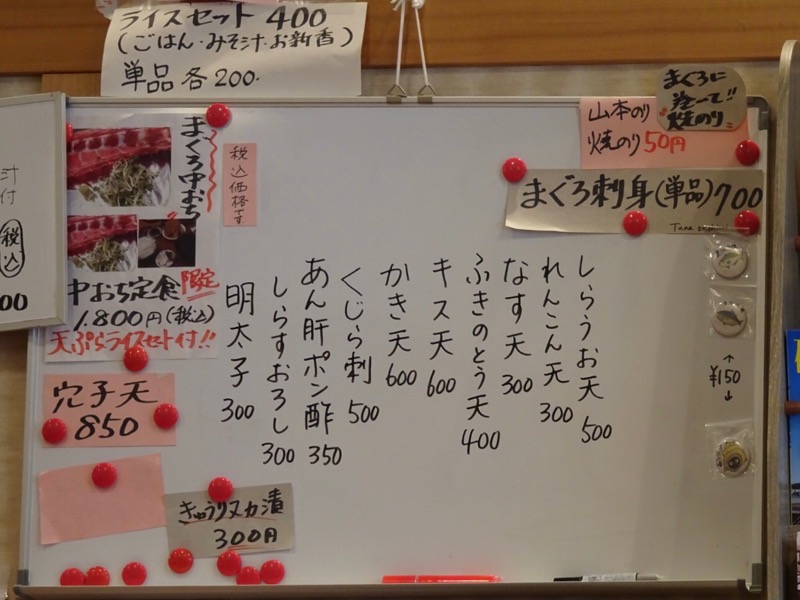 ライスセット 400
(ごはん・みそ汁・お新香)
単品 各200.
まぐろに
巻いて!!
焼のり
山本のり
焼のり50円
まぐろ刺身(単品)700
税込価格です
まぐろ中おち
中おち定食 限定
1.800円(税込)
天ぷらライスセット付!!
汁付
税込
00
しらうお天 500
れんこん天 300
なす天 300
ふきのとう天 400
キス天 600
かき天 600
くじら刺 500
あん肝ポン酢 350
しらすおろし 300
明太子 300
↑
¥150
↓
穴子天
850
きゅうりヌカ漬
300円